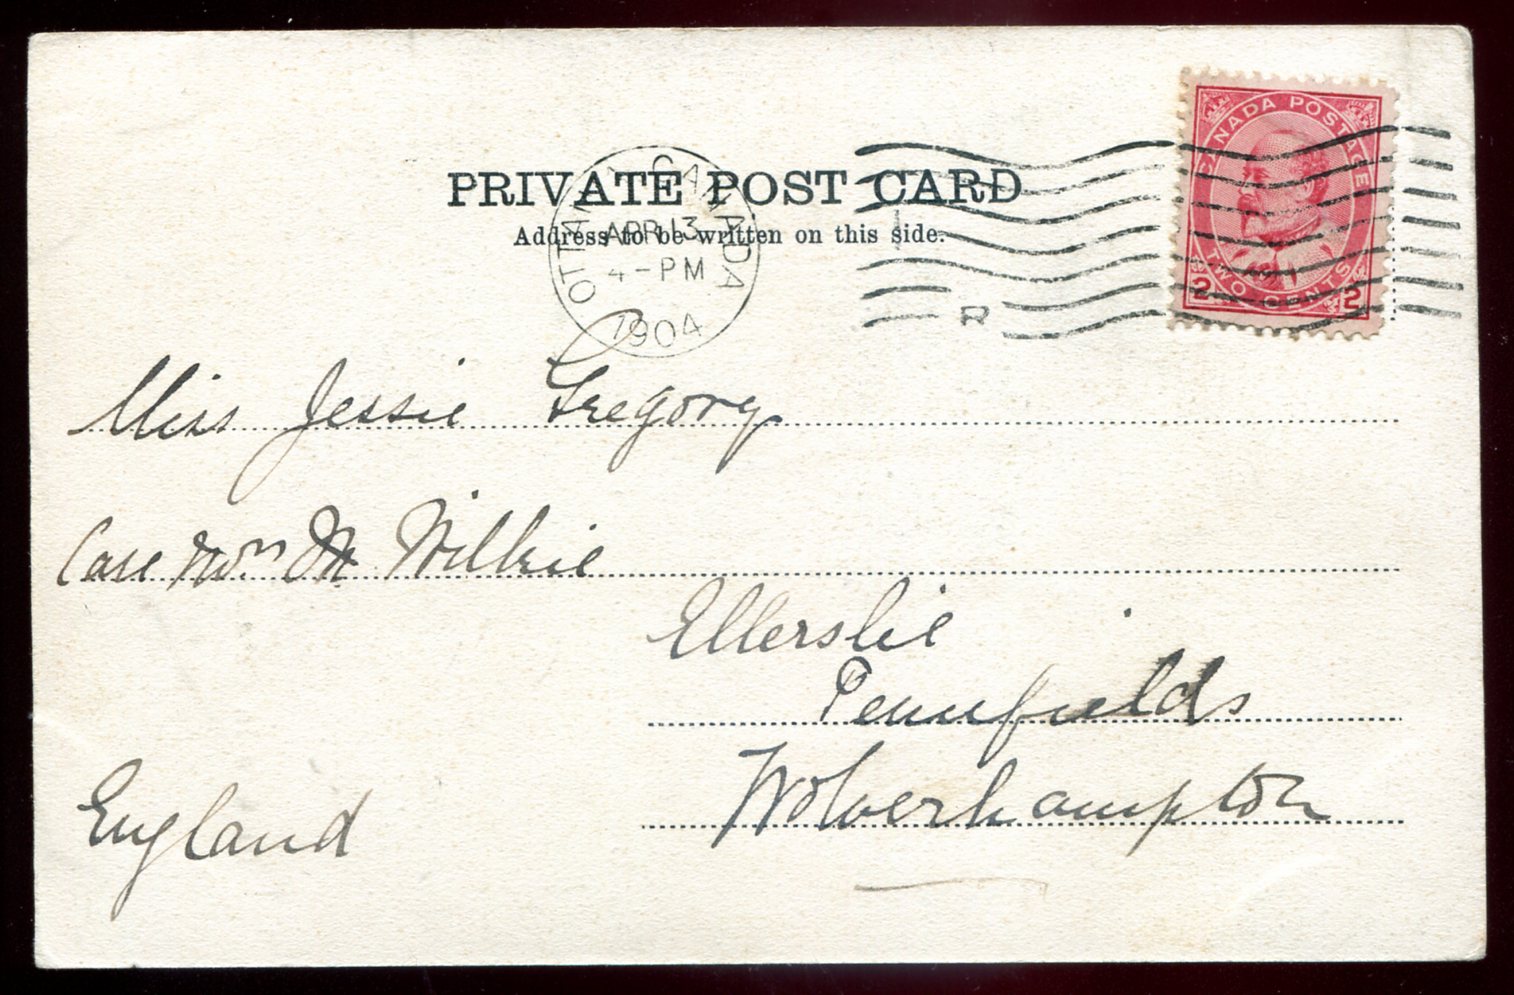 PRIVATE POST CARD
Address to be written on this side.
OTTAWA CANADA
APR 13
4-PM
1904
R
CANADA POSTAGE
TWO CENTS
2 2
Miss Jessie Gregory
Care Wm Wilkie
Ellerslie
Pennfields
Wolverhampton
England